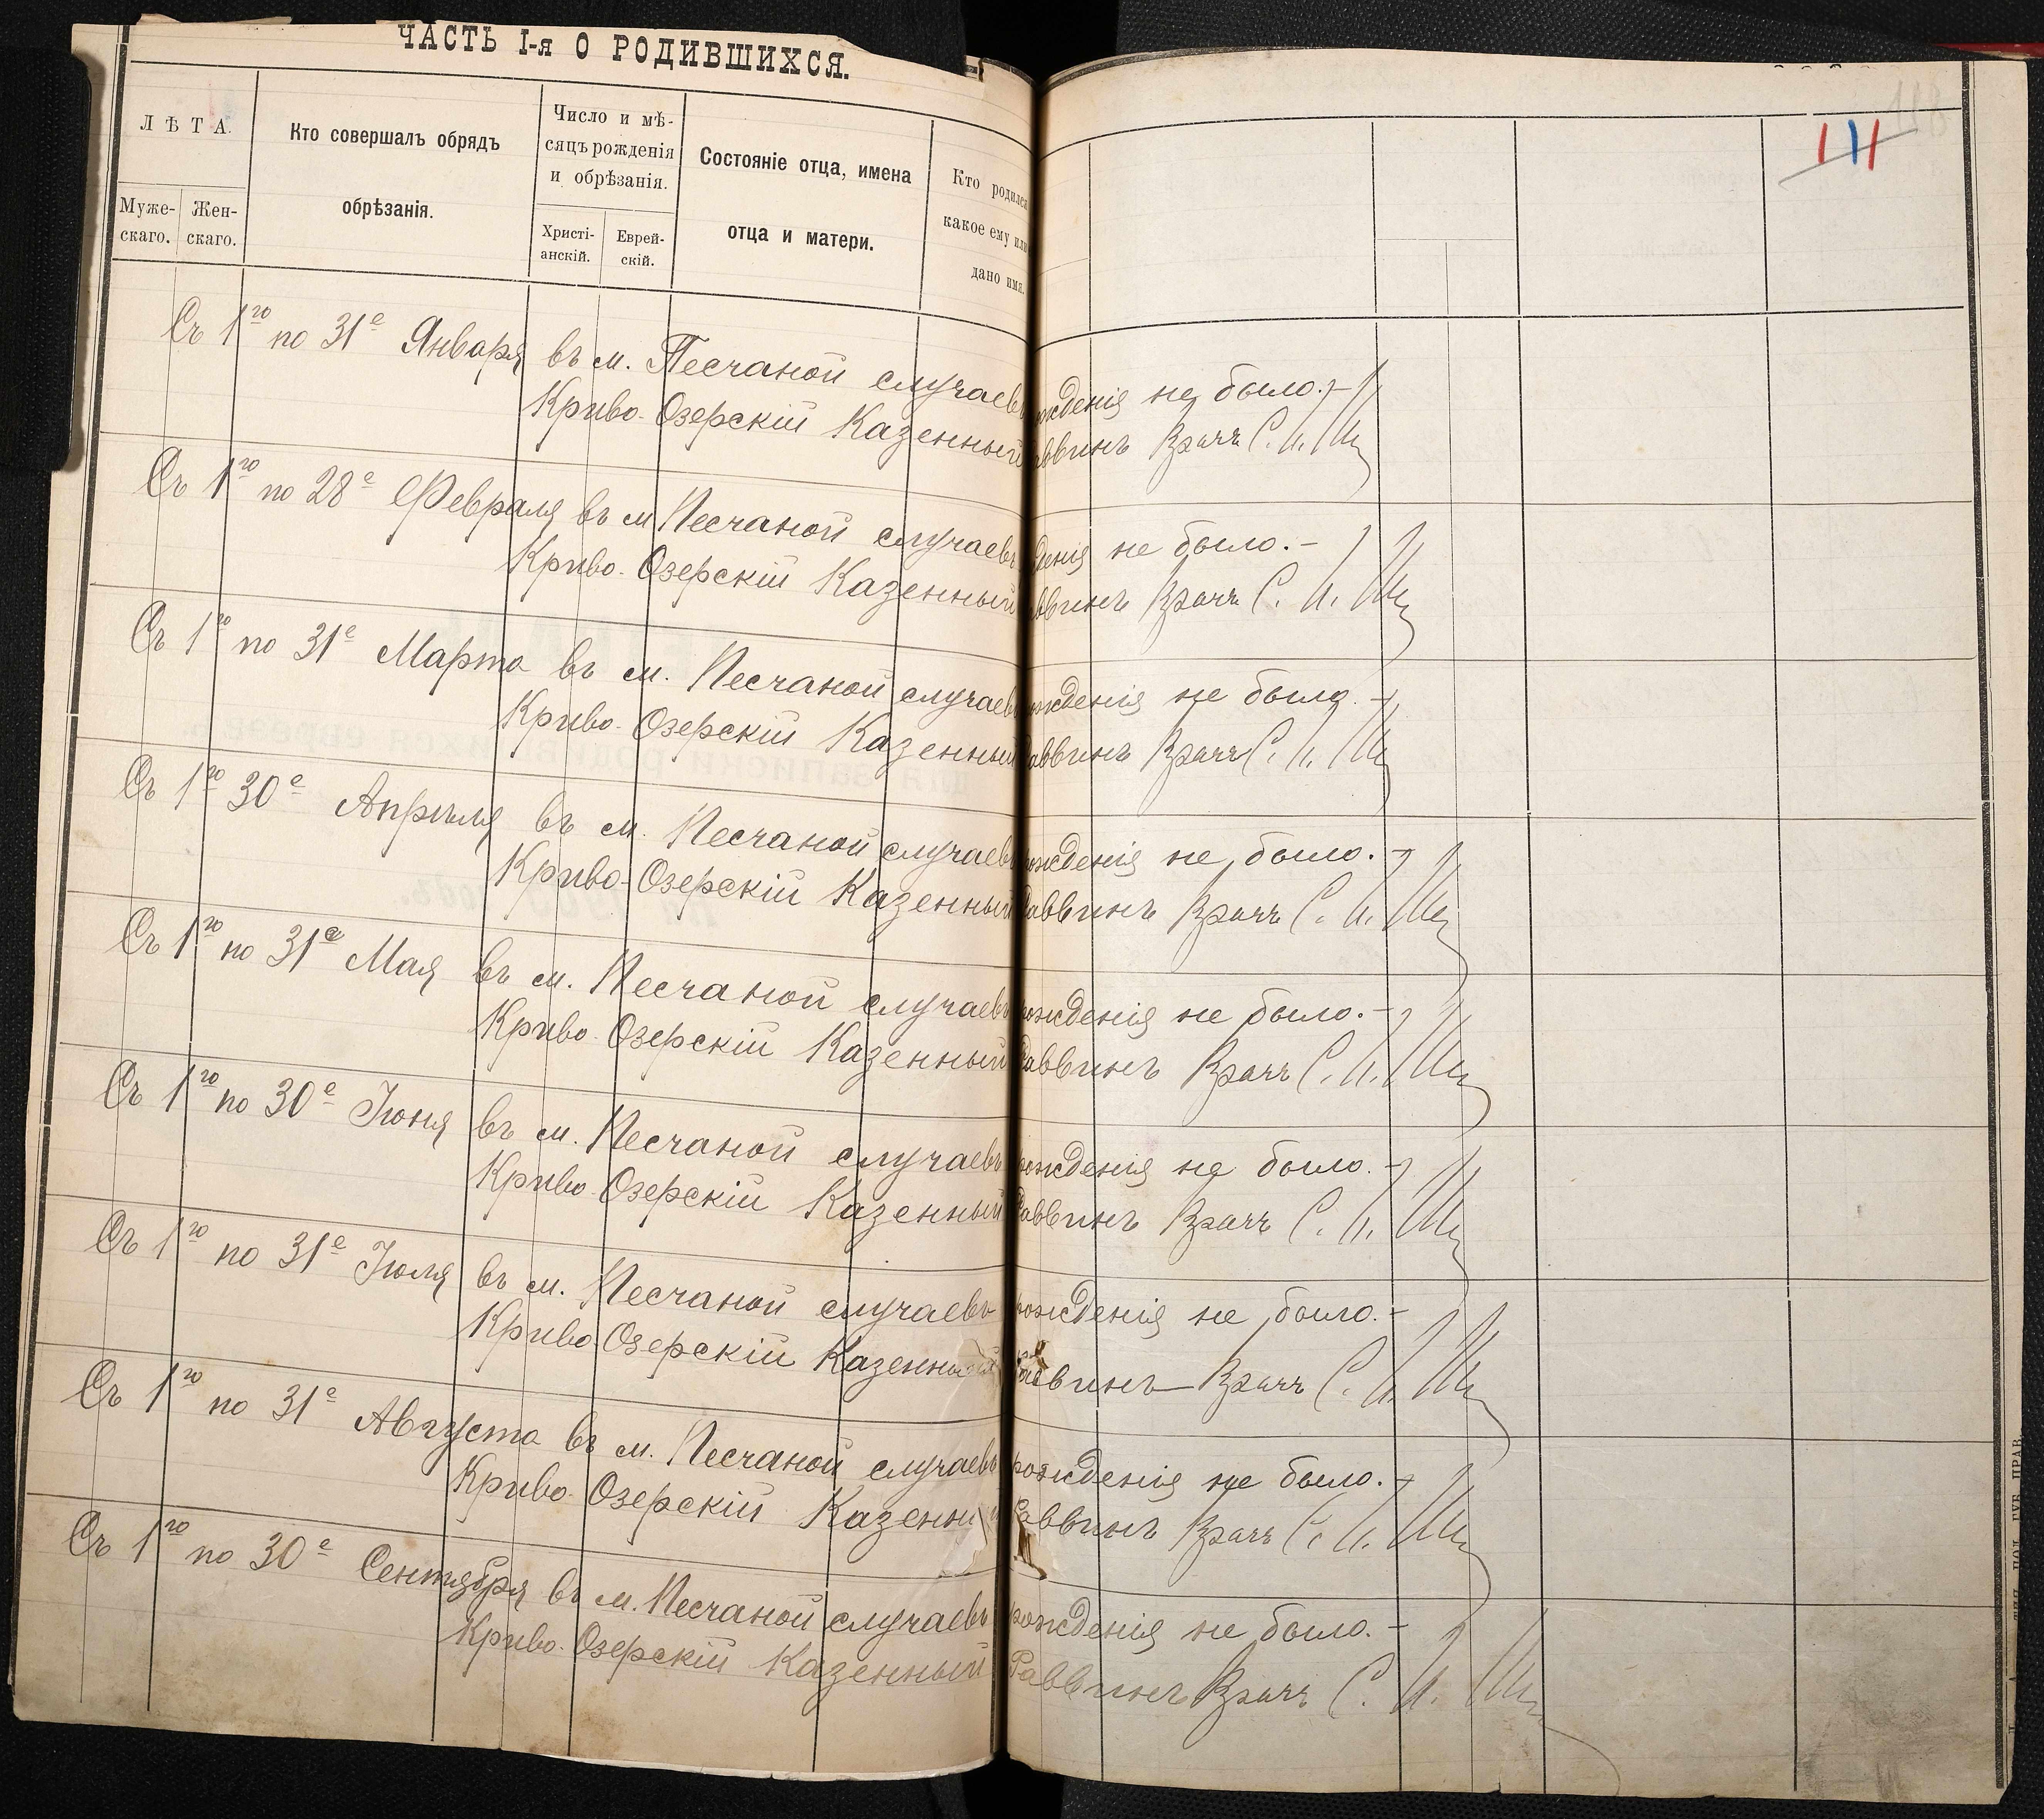 ЧАСТЬ I-я О РОДИВШИХСЯ.
ЛѢТА.
Муже-
скаго.
Жен-
скаго.
Кто совершалъ обрядъ
обрѣзанія.
Число и мѣ-
сяцъ рожденія
и обрѣзанія.
Христі-
анскій.
Еврей-
скій.
Состояніе отца, имена
отца и матери.
Кто родился
какое ему или
дано имя.
111
Съ 1го по 31е Января въ м. Песчаной случаевъ ожденія не было.-
Криво-Озерскій Казенный аввинъ Врачъ С. И.
Съ 1го по 28е Февраля въ м Песчаной случаевъ денія не было.-
Криво-Озерскій Казенный аввинъ Врачъ С. И.
Съ 1го по 31е Марта въ м. Песчаной случаевъ ожденія не было.-
Криво-Озерскій Казенный аввинъ Врачъ С. И.
Съ 1го 30е Апрѣля въ м. Песчаной случаевъ рожденія не было.-
Криво-Озерскій Казенный Раввинъ Врачъ С. И.
Съ 1го по 31е Мая въ м. Песчаной случаевъ рожденія не было.-
Криво-Озерскій Казенный Раввинъ Врачъ С. И.
Съ 1го по 30е Іюня въ м. Песчаной случаевъ рожденія не было.-
Криво-Озерскій Казенный Раввинъ Врачъ С. И.
Съ 1го по 31е Іюля въ м. Песчаной случаевъ рожденія не было.-
Криво-Озерскій Казенный Раввинъ-Врачъ С. И.
Съ 1го по 31е Августа въ м. Песчаной случаевъ рожденія не было.-
Криво-Озерскій Казенн Раввинъ Врачъ С. И.
Съ 1го по 30е Сентября въ м. Песчаной случаевъ рожденія не было.-
Криво-Озерскій Казенный Раввинъ Врачъ С. И.